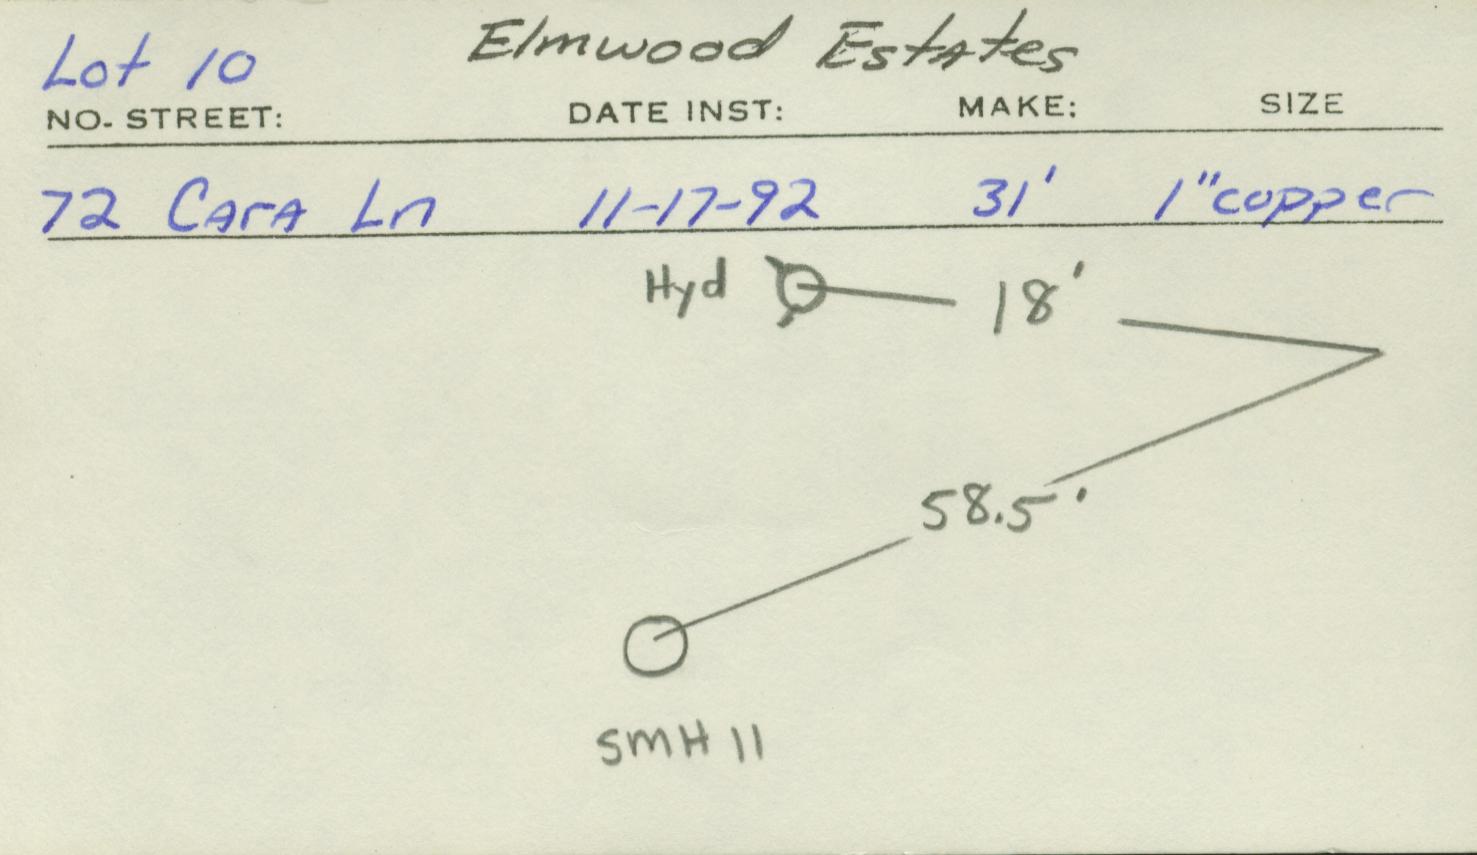 Lot 10 Elmwood Estates
NO. STREET: DATE INST: MAKE: SIZE
72 Cara Ln 11-17-92 31' 1" copper
Hyd 18'
58.5'
SMH 11